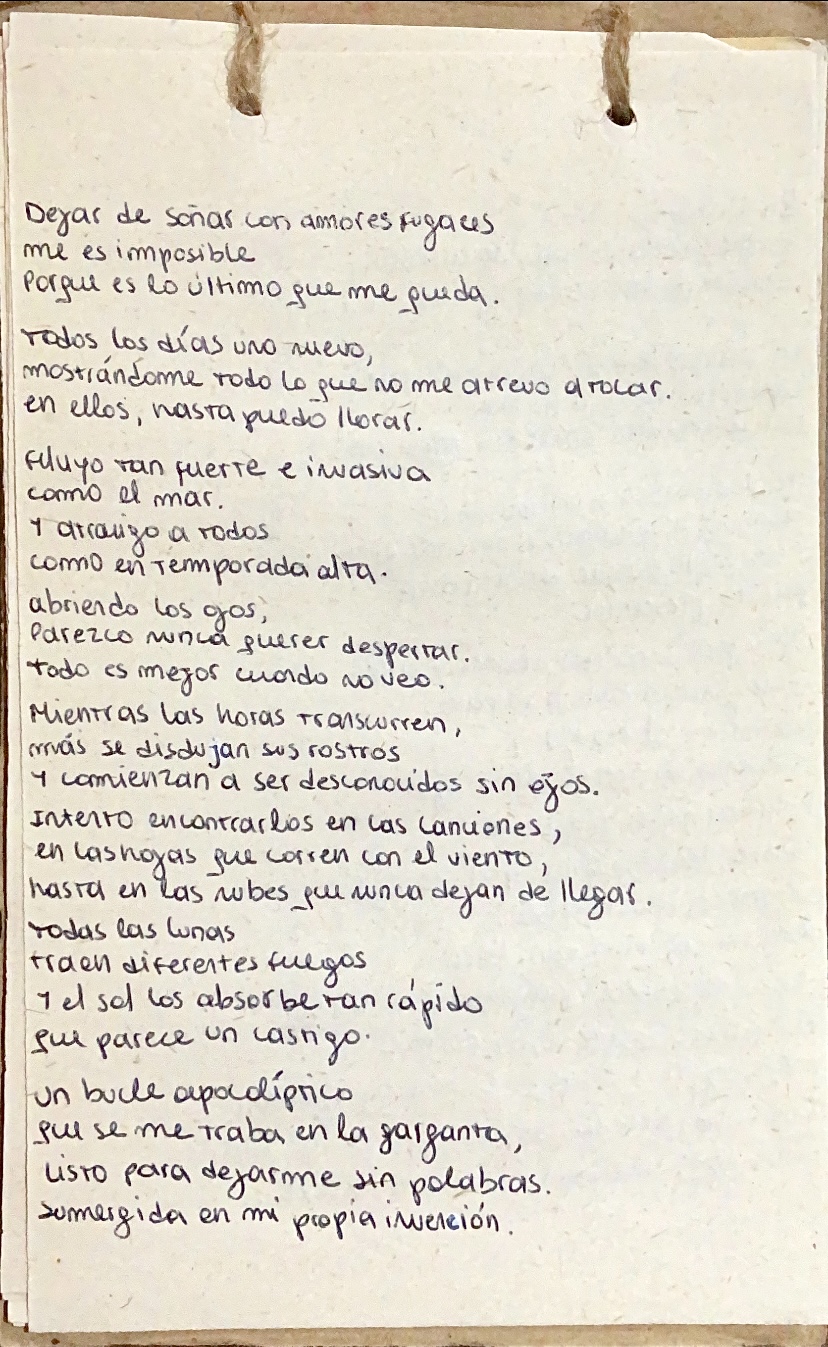 Dejar de soñar con amores fugaces
me es imposible
Porque es lo último que me queda.
Todos los días uno nuevo,
mostrándome todo lo que no me atrevo a tocar.
en ellos, hasta puedo llorar.
Fluyo tan fuerte e invasiva
como el mar.
Y arraigo a todos
como en temporada alta.
abriendo los ojos,
Parezco nunca querer despertar.
Todo es mejor cuando no veo.
Mientras las horas transcurren,
más se disdujan sus rostros
Y comienzan a ser desconocidos sin ojos.
Intento encontrarlos en las canciones,
en las hojas que corren con el viento,
hasta en las nubes que nunca dejan de llegar.
Todas las lunas
traen diferentes fuegos
Y el sol los absorbe tan rápido
que parece un castigo.
un bucle apocalíptico
que se me traba en la garganta,
Listo para dejarme sin palabras.
sumergida en mi propia invención.